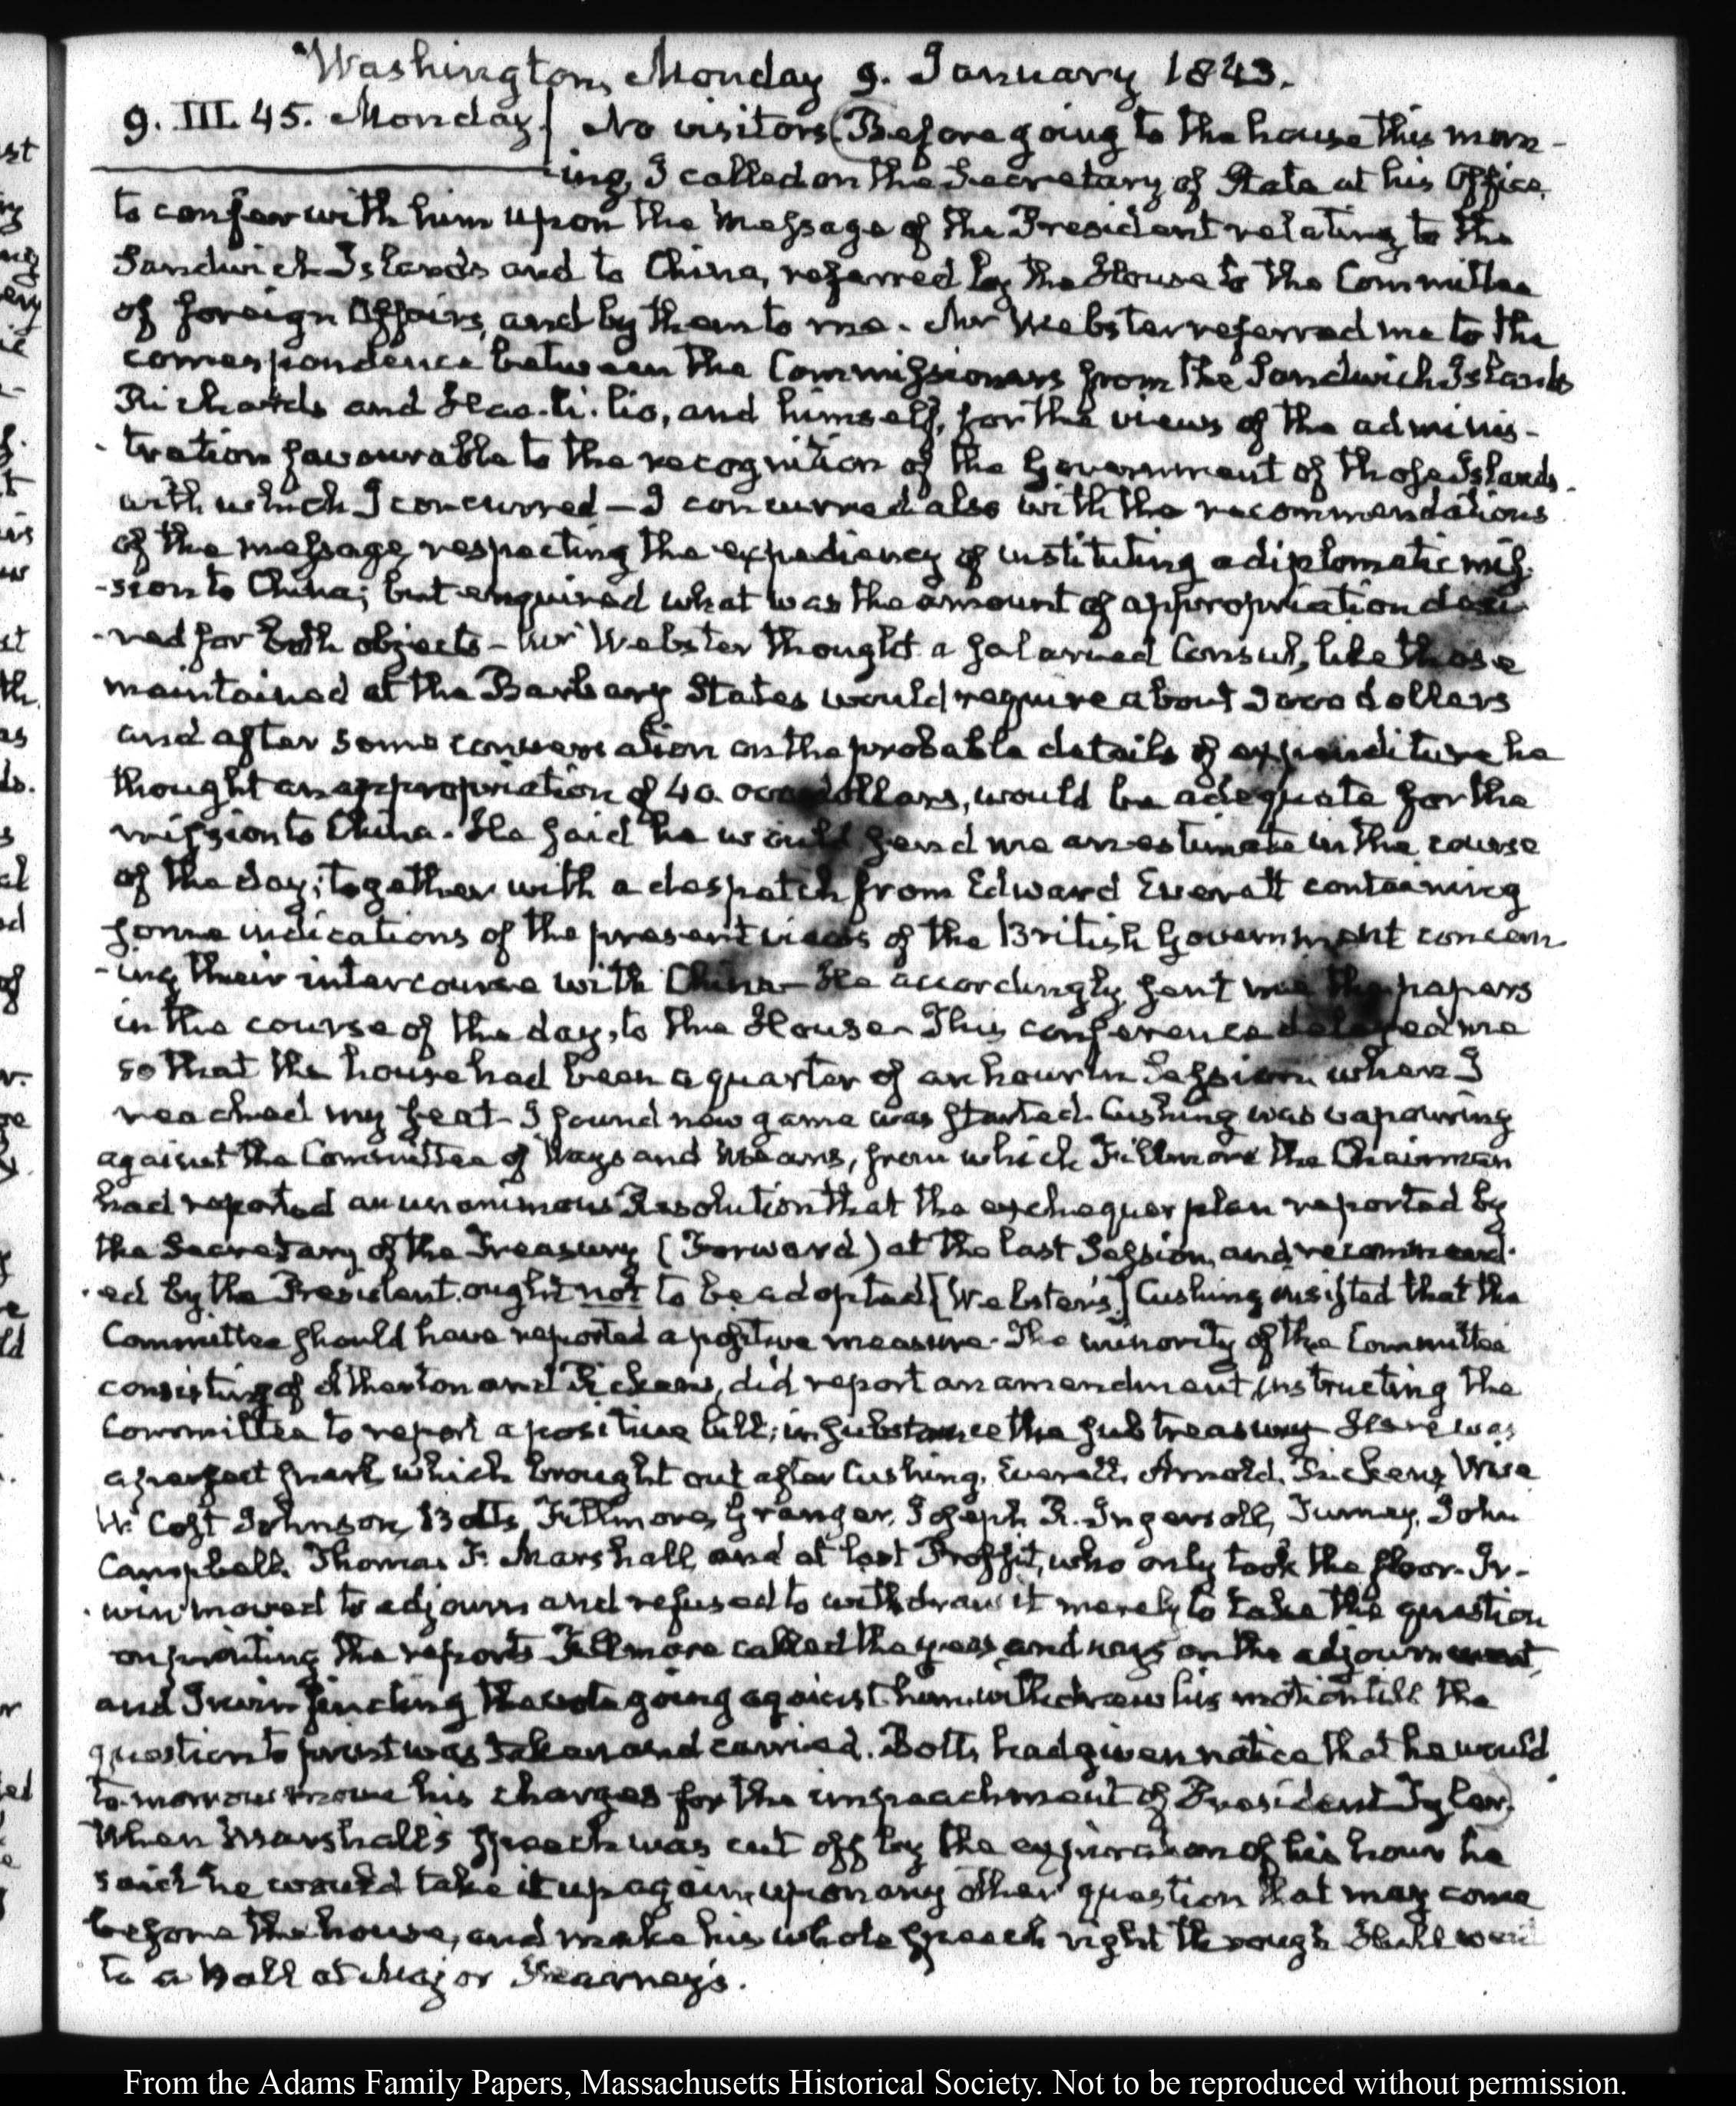 Washington, Monday 9. January 1843.
9. III. 45. Monday. No visitors (Before going to the house this morn-
ing, I called on the Secretary of State at his Office,
to confer with him upon the Message of the President relating to the
Sandwich Islands and to China, referred by the House to the Committee
of foreign Affairs, and by them to me. Mr Webster referred me to the
correspondence between the Commissioners from the Sandwich Islands
Richards and Haa.li.lio, and himself, for the views of the adminis-
-tration favourable to the recognition of the Government of those Islands.
with which I concurred – I concurred also with the recommendations
of the message, respecting the expediency of instituting a diplomatic mis-
-sion to China; but enquired what was the amount of appropriation desi-
-red for both objects – Mr Webster thought a salaried Consul, like those
maintained at the Barbary States would require about 3000 dollars
and after some conversation on the probable details of expenditure he
thought an appropriation of 40.000 dollars, would be adequate for the
mission to China. He said he would send me an estimate in the course
of the day; together with a despatch from Edward Everett containing
some indications of the present views of the British Government concern-
-ing their intercourse with China – He accordingly sent me the papers
in the course of the day, to the House – This conference delayed me
so that the house had been a quarter of an hour in Session when I
reached my seat – I found new game was started. Cushing was vapouring
against the Committee of Ways and Means, from which Fillmore the Chairman
had reported an unanimous Resolution that the exchequer plan reported by
the Secretary of the Treasury (Forward) at the last Session, and recommend-
-ed by the President, ought not to be adopted [Webster's.] Cushing insisted that the
Committee should have reported a positive measure. The minority of the Committee
consisting of Atherton and Pickens, did report an amendment, instructing the
Committee to report a positive bill; in substance the sub treasury – Here was
a perfect snarl, which brought out after Cushing, Everett, Arnold, Pickens, Wise
W. Cost Johnson, Botts, Fillmore, Granger, Joseph R. Ingersoll, Turney, John
Campbell, Thomas F. Marshall, and at last Proffit, who only took the floor – Ir-
-win moved to adjourn and refused to withdraw it merely to take the question
on printing the reports – Fillmore called the yeas and nays on the adjournment,
and Irwin finding the vote going against him withdrew his motion till the
question to print was taken and carried. Botts had given notice that he would
to-morrow move his charges for the impeachment of President Tyler)
When Marshall's speech was cut off by the expiration of his hour he
said he would take it up again, upon any other question that may come
before the house, and make his whole speech right through
to a Ball at Major Kearney's.
From the Adams Family Papers, Massachusetts Historical Society. Not to be reproduced without permission.